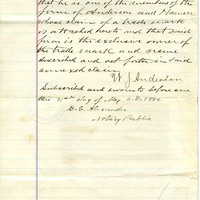 that he is one of the members of the
firm of Anderson and
whose claim of a trade mark
is attached hereto and that said
firm is the exclusive owner of
the trade mark and name
described and set forth in said
annexed claim
W. J. Anderson
Subscribed and sworn to before me
this day of May A.D. 18
D. E. Alexander
Notary Public